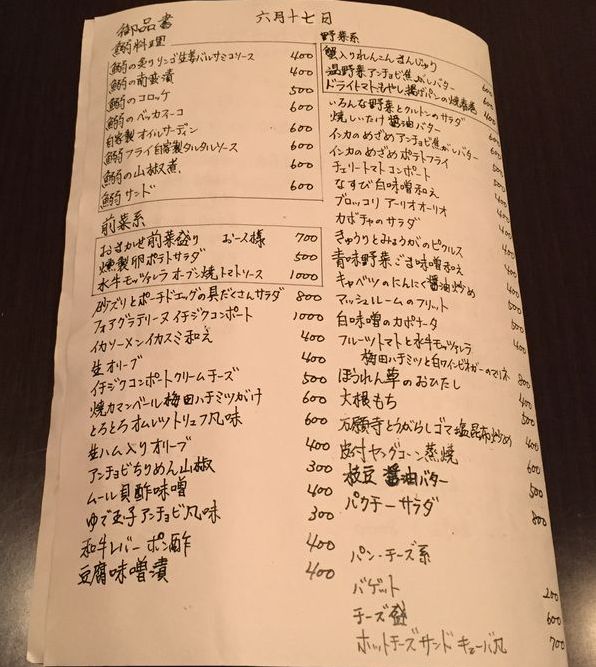 御品書
六月十七日
鰯料理
鰯の炙りリンゴ生姜バルサミコソース 400
鰯の南蛮漬 400
鰯のコロッケ 500
鰯のベッカフィーコ 600
自家製オイルサーディン 600
鰯フライ自家製タルタルソース 600
鰯の山椒煮 600
鰯サンド 600
前菜系
おまかせ前菜盛り お一人様 700
燻製卵ポテトサラダ 500
水牛モッツァレラオーブン焼トマトソース 1000
砂ズリとポーチドエッグの具だくさんサラダ 800
フォアグラテリーヌイチジクコンポート 1000
イカソーメンイカスミ和え 400
生オリーブ 400
イチジクコンポートクリームチーズ 500
焼カマンベール梅田ハチミツがけ 600
とろとろオムレツトリュフ風味 600
生ハム入りオリーブ 400
アンチョビちりめん山椒 300
ムール貝酢味噌 400
ゆで玉子アンチョビ風味 300
和牛レバーポン酢 400
豆腐味噌漬 400
野菜系
蟹入りれんこんまんじゅう 600
温野菜アンチョビ焦がしバター
ドライトマトもやし揚げパンの焼春巻
いろんな野菜とクルトンのサラダ
焼しいたけ醤油バター
インカのめざめアンチョビ焦がしバター
インカのめざめポテトフライ
チェリートマトコンポート
なすび白味噌和え
ブロッコリアーリオオーリオ
カボチャのサラダ
きゅうりとみょうがのピクルス
青味野菜ごま味噌和え
キャベツのにんにく醤油炒め
マッシュルームのフリット
白味噌のカポナータ
フルーツトマトと水牛モッツァレラ
梅田ハチミツと白ワインビネガーのマリネ 800
ほうれん草のおひたし 400
大根もち 500
万願寺とうがらしゴマ塩昆布炒め 400
皮付ヤングコーン蒸焼 600
枝豆醤油バター 500
パクチーサラダ 800
パン・チーズ系
バゲット 200
チーズ盛 600
ホットチーズサンドキューバ風 700